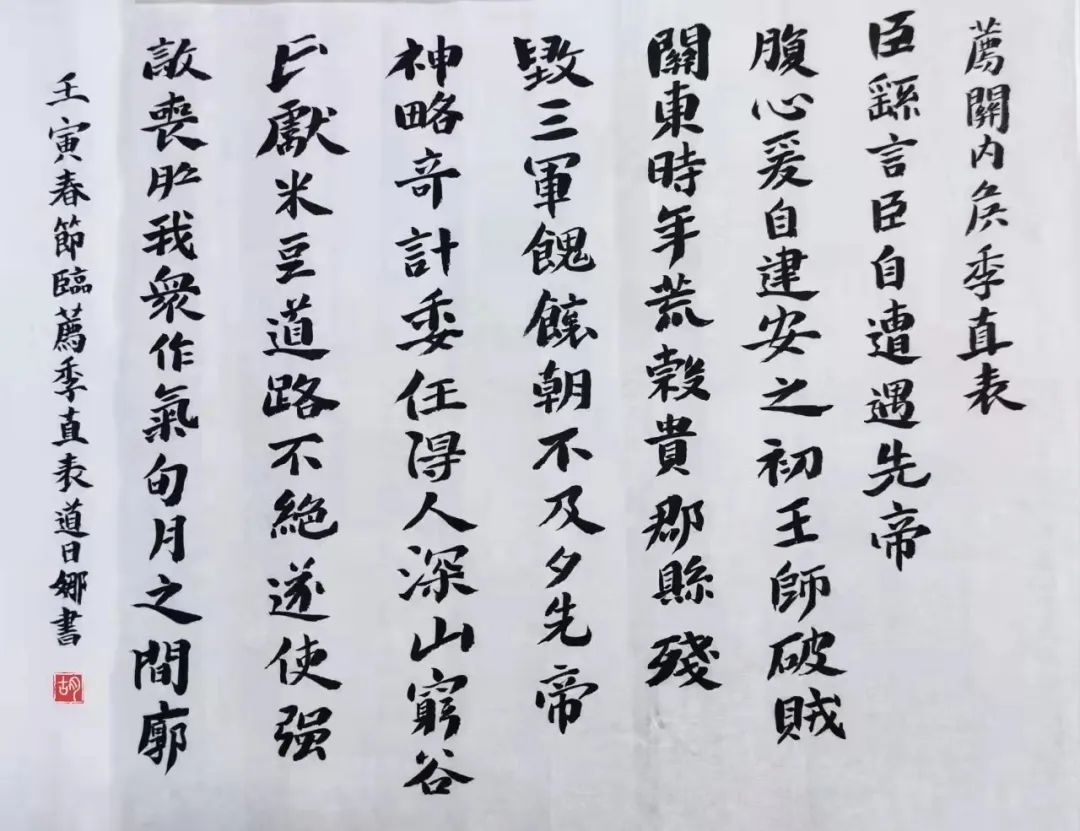 薦關內侯季直表
臣繇言臣自遭遇先帝
腹心爰自建安之初王師破賊
關東時年荒穀貴郡縣殘
毀三軍餽饟朝不及夕先帝
神略奇計委任得人深山窮谷
民獻米豆道路不絕遂使强
敵喪膽我衆作氣旬月之間廓
壬寅春節臨薦季直表道日娜書
胡